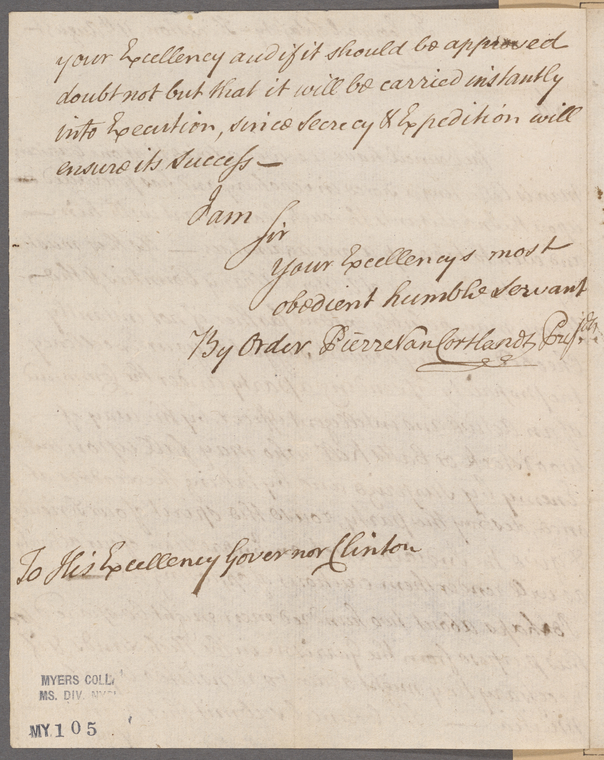 your Excellency and if it should be approved
doubt not but that it will be carried instantly
into Execution, since Secrecy & Expedition will
ensure its Success —
I am
Sir
Your Excellencys most
obedient humble Servant
By Order, Pierre Van Cortlandt Presidt.
To His Excellency Governor Clinton
MYERS COLL.
MS. DIV.
MY 105